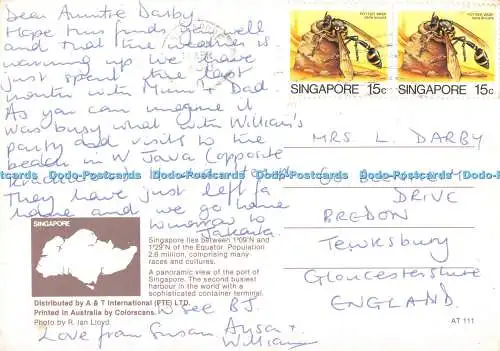 Dear Auntie Darby,
Hope this finds you well
and that the weather is
warming up we have
just spent the last
month with Mum & Dad.
As you can imagine it
was busy what with William's
party and visits to the
beach in W Java (opposite
They have just left for
home and we go home
tomorrow to
Jakarta.
W see BJ.
Love from Susan Alysa +
William
POTTER WASP
SINGAPORE 15c
POTTER WASP
SINGAPORE 15c
MRS L. DARBY
DRIVE
BREDON
Tewksbury
Gloucestershire
ENGLAND.
Dodo-Postcards Dodo-Postcards Dodo-Postcards Dodo-Postcards
SINGAPORE
Singapore lies between 1°09'N and
1°29'N of the Equator. Population
2.6 million, comprising many
races and cultures.
A panoramic view of the port of
Singapore. The second busiest
harbour in the world with a
sophisticated container terminal.
Distributed by A & T International (PTE) LTD.
Printed in Australia by Colorscans.
Photo by R. Ian Lloyd.
AT 111